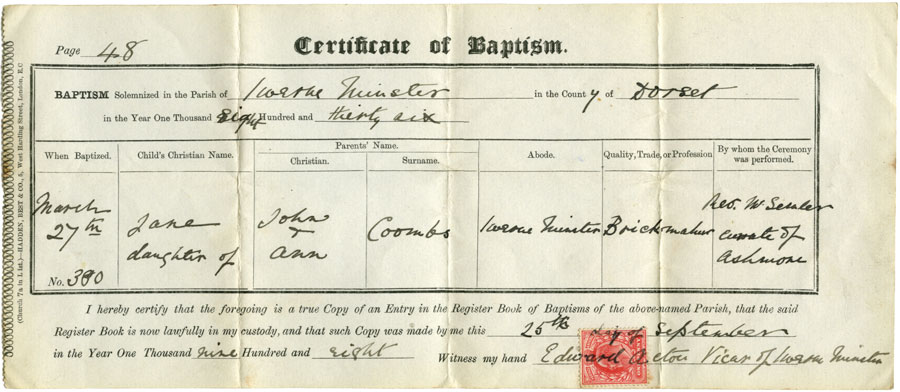 Page 48
Certificate of Baptism.
BAPTISM Solemnized in the Parish of Iwerne Minster in the County of Dorset
in the Year One Thousand Eight Hundred and thirty six
When Baptized. Child's Christian Name. Parents' Name. Christian. Surname. Abode. Quality, Trade, or Profession By whom the Ceremony was performed.
March 27th
No. 380
Jane
daughter of
John
+
Ann
Coombs
Iwerne Minster
Brickmaker
Rev. W
curate of
Ashmore
I hereby certify that the foregoing is a true Copy of an Entry in the Register Book of Baptisms of the above-named Parish, that the said
Register Book is now lawfully in my custody, and that such Copy was made by me this 25th day of September
in the Year One Thousand nine Hundred and eight Witness my hand Edward Acton Vicar of Iwerne Minster
(Church 7a in L list.)—HADDEN, BEST & CO., 5, West Harding Street, London, E.C